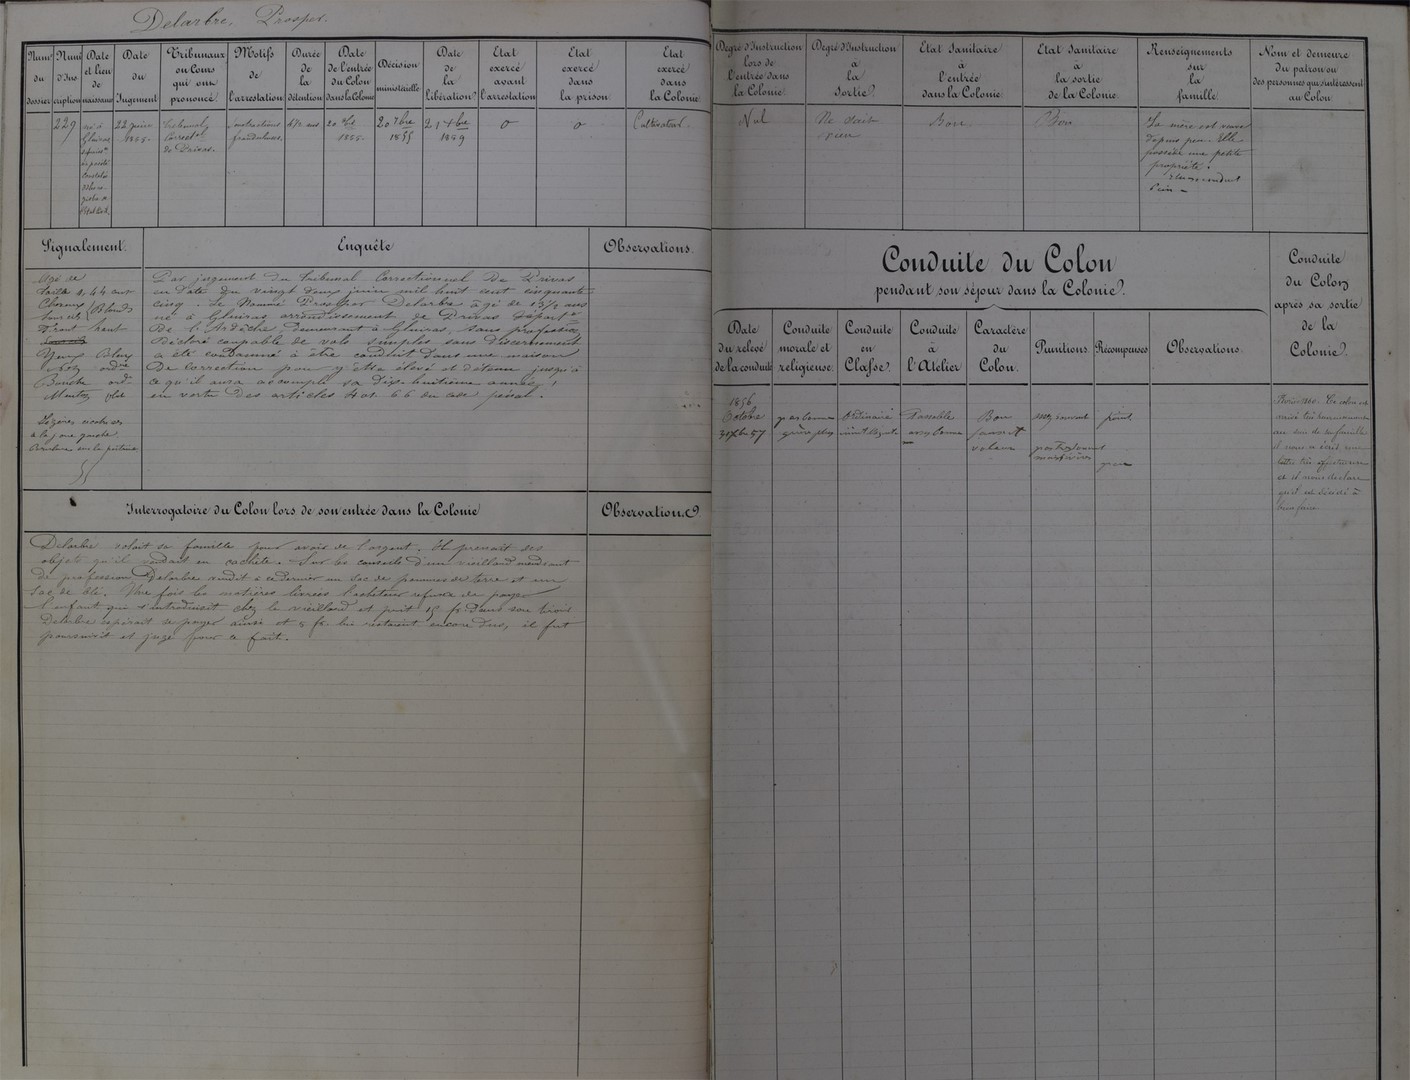 Delarbre, Prosper.
Numo du dossier
Numo d'Inscription
Date et lieu de naissance
Date du Jugement
Tribunaux ou Cours qui ont prononcé.
Motifs de l'arrestation
Durée de la détention
Date de l'entrée du Colon dans la Colonie
Décision ministérielle
Date de la libération
Etat exercé avant l'arrestation
Etat exercé dans la prison.
Etat exercé dans la Colonie
Degré d'Instruction lors de l'entrée dans la Colonie.
Degré d'Instruction à la Sortie.
Etat Sanitaire à l'entrée dans la Colonie.
Etat Sanitaire à la sortie de la Colonie.
Renseignements sur la famille.
Nom et demeure du patron ou des personnes qui s'intéressent au Colon.
229
né à
Gluiras
22 juin
1855.
Tribunal
Correctel
de Privas.
4 1/2 ans
20 7bre
1855.
20 7bre
1855
21 7bre
1859
0
0
Cultivateur.
Nul
Ne sait
rien
Bon
Bon
La mère est veuve
depuis peu. Elle
possède une petite
propriété.
Signalement.
Enquête
Observations.
Age de
Taille 1,44
Cheveux
Sourcils
Blonds
Front haut
Yeux Bleus
Nez ordre
Bouche ord.
Menton
Légères cicatrices
à la joue gauche.
sur la poitrine
Par jugement du Tribunal Correctionnel de Privas
en date du vingt deux juin mil huit cent cinquante
cinq. Le Nommé Prosper Delarbre âgé de 13 1/2 ans
né à Gluiras arrondissement de Privas Départt
de l'Ardèche, demeurant à Gluiras, sans profession,
Déclaré coupable de vols simples sans discernement
a été condamné à être conduit dans une maison
de correction pour y être élevé et détenu jusqu'à
ce qu'il aura accompli sa dix-huitième année,
en vertu des articles 401. 66 du code pénal.
Interrogatoire du Colon lors de son entrée dans la Colonie
Observations.
Delarbre volait sa famille pour avoir de l'argent. Il prenait des
objets qu'il vendait en cachette. Sur les conseils d'un vieillard mendiant
de profession Delarbre vendit à ce dernier un sac de pommes de terre et un
sac de blé. Une fois les matières livrées l'acheteur refusa de payer
l'enfant qui s'introduisit chez le vieillard et prit 15 fs dans son tiroir
Delarbre espérait se payer ainsi et 5 fs. lui restaient encore dus, il fut
poursuivi et jugé pour ce fait.
Conduite du Colon
pendant son séjour dans la Colonie.
Date du relevé de la conduite
Conduite morale et religieuse.
Conduite en Classe.
Conduite à l'Atelier
Caractère du Colon.
Punitions.
Récompenses
Observations.
Conduite du Colon après sa sortie de la Colonie.
1856
Octobre
pas bonne
Ordinaire
Passable
Bon
assez souvent
point
guère plus
assez bonne
Février 1860. Ce colon est
arrivé
au sein de sa famille
il nous a écrit une
lettre très affectueuse
et il nous déclare
qu'il est décidé à
bien faire